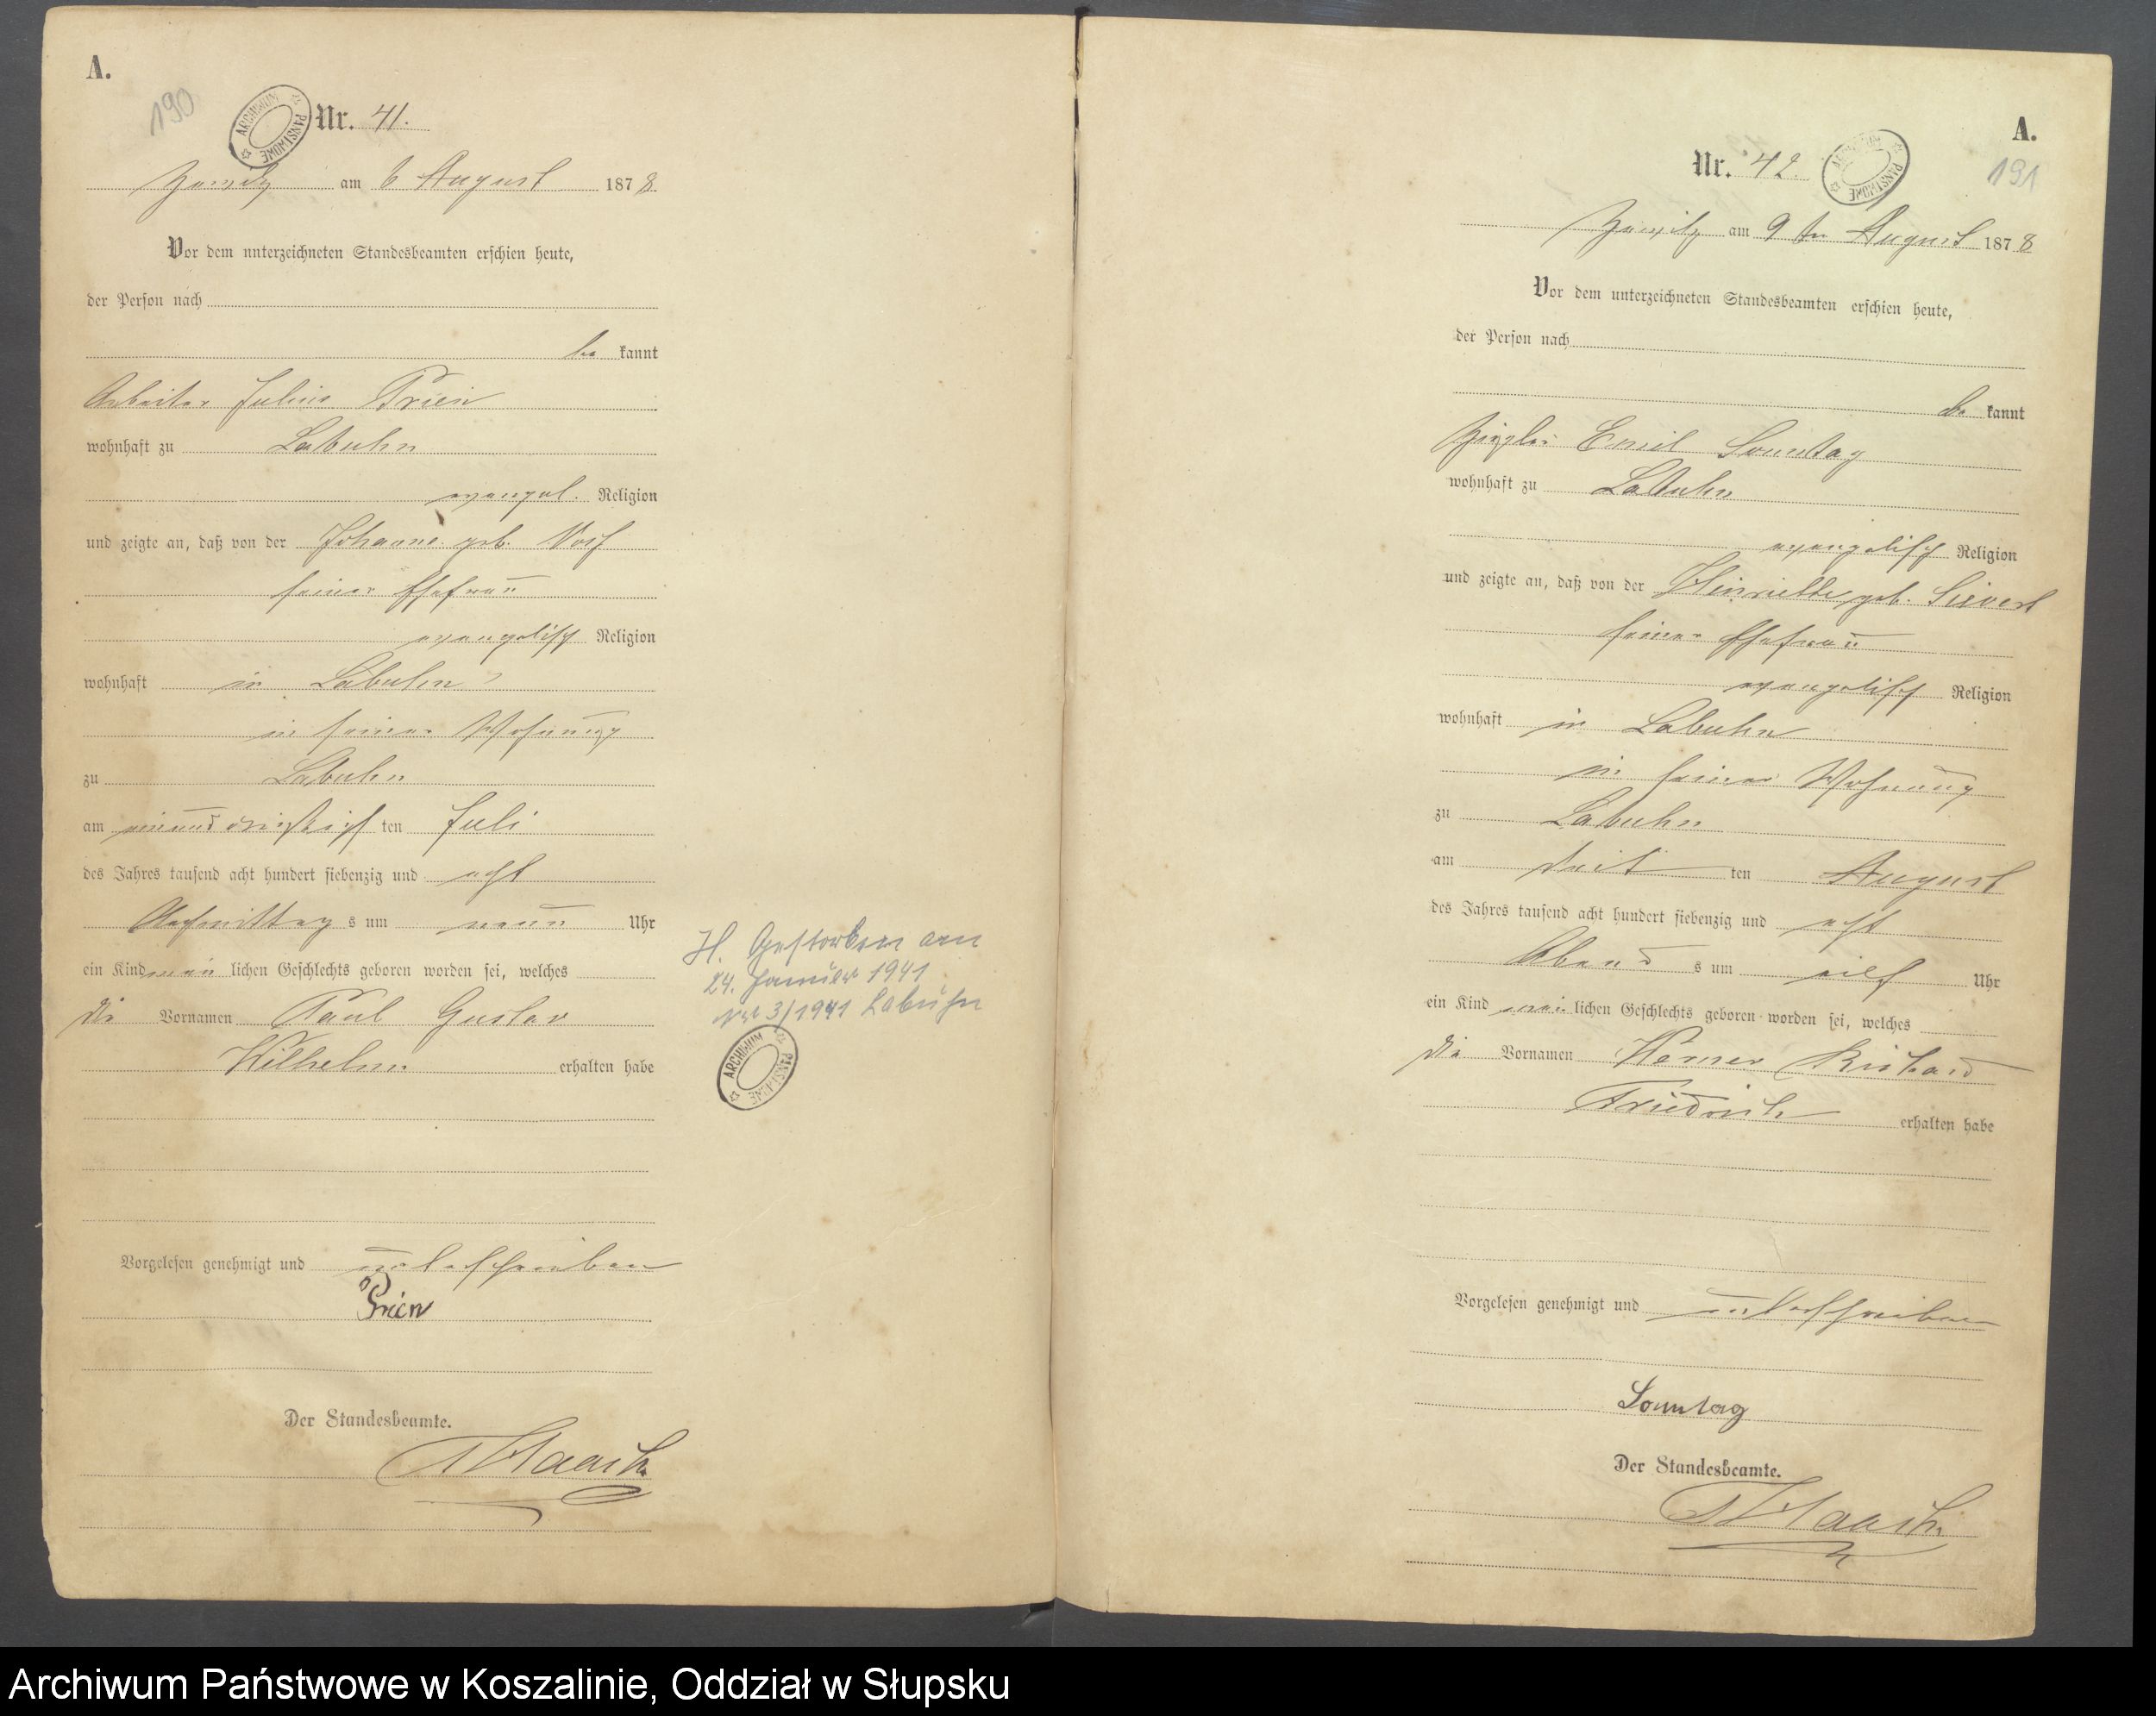 A.
190
ARCHIWUM PAŃSTWOWE
Nr. 41.
Zewitz am 6 August 1878
Vor dem unterzeichneten Standesbeamten erschien heute,
der Person nach
be kannt
Arbeiter Julius Prien
wohnhaft zu Labuhn
evangel. Religion
und zeigte an, daß von der Johanne geb. Voß
seiner Ehefrau
evangelisch Religion
wohnhaft in Labuhn
in seiner Wohnung
zu Labuhn
am einunddreißigs ten Juli
des Jahres tausend acht hundert siebenzig und acht
Nachmittag s um neun Uhr
ein Kind männ lichen Geschlechts geboren worden sei, welches
die Vornamen Paul Gustav
Wilhelm erhalten habe
H. Gestorben am
24. Januar 1941
Nr 3/1941 Labuhn
ARCHIWUM PAŃSTWOWE
Vorgelesen genehmigt und unterschrieben
Prien
Der Standesbeamte.
A.
Nr. 42.
ARCHIWUM PAŃSTWOWE
191
Zewitz am 9 ten August 1878
Vor dem unterzeichneten Standesbeamten erschien heute,
der Person nach
be kannt
Ziegler Emil Sonntag
wohnhaft zu Labuhn
evangelisch Religion
und zeigte an, daß von der Henriette geb. Sievert
seiner Ehefrau
evangelisch Religion
wohnhaft in Labuhn
in seiner Wohnung
zu Labuhn
am ten August
des Jahres tausend acht hundert siebenzig und acht
Abend s um elf Uhr
ein Kind männ lichen Geschlechts geboren worden sei, welches
die Vornamen Werner Richard
Friedrich erhalten habe
Vorgelesen genehmigt und unterschrieben
Sonntag
Der Standesbeamte.
Archiwum Państwowe w Koszalinie, Oddział w Słupsku